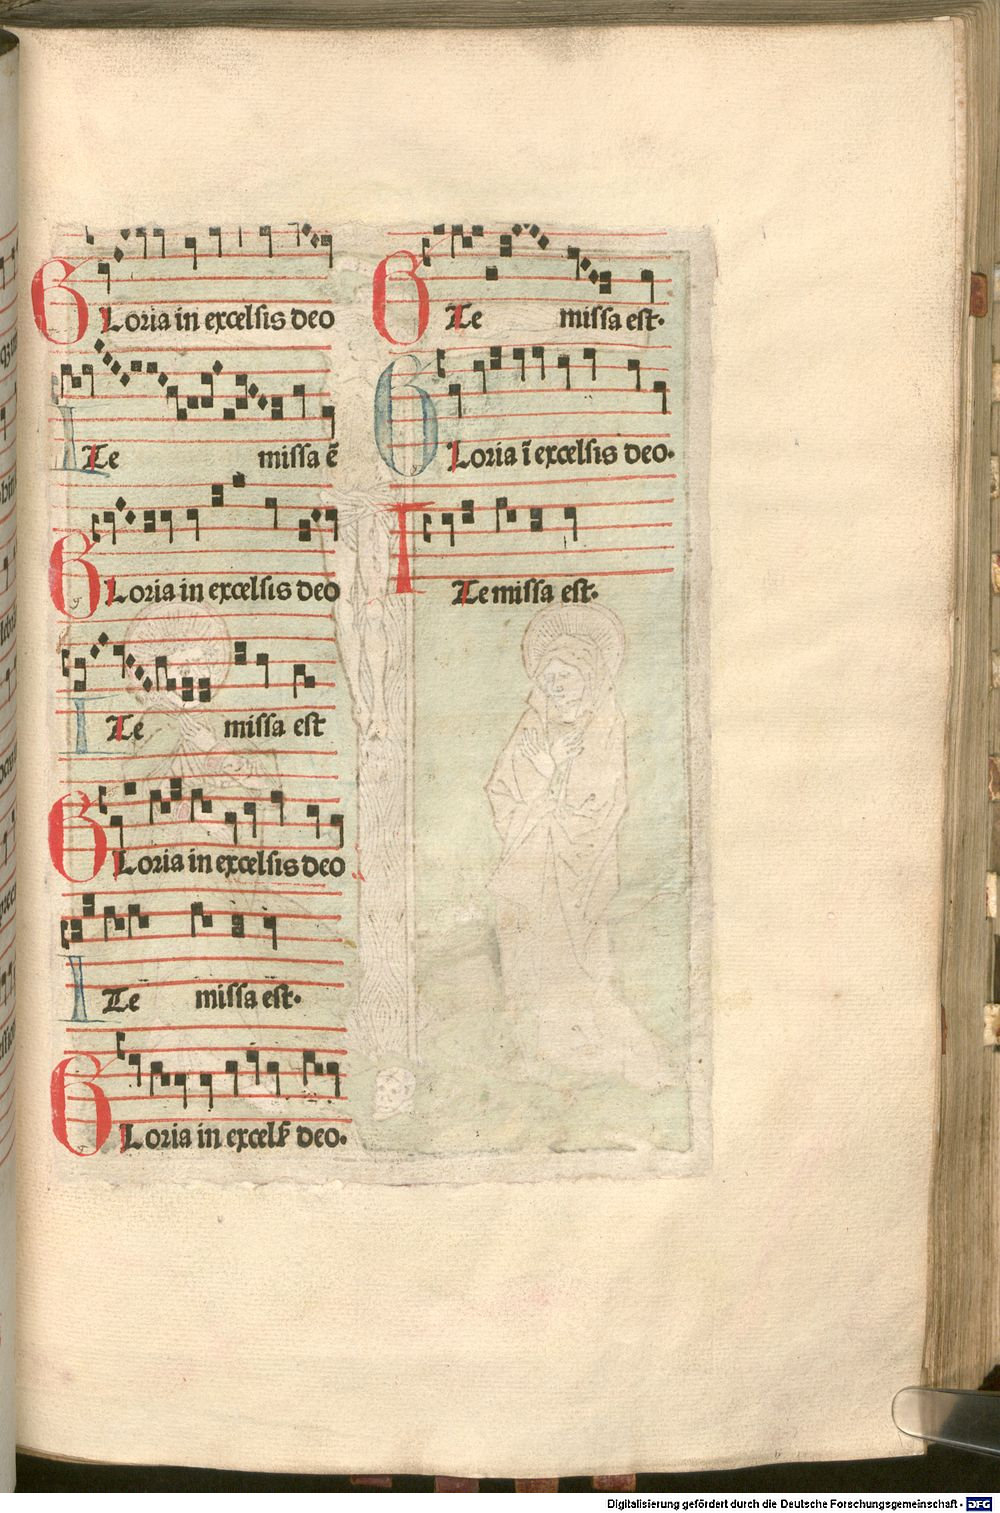 Gloria in excelsis deo
Ite missa ē
Gloria in excelsis deo
Ite missa est
Gloria in excelsis deo
Ite missa est.
Gloria in excelſ deo.
Ite missa est.
Gloria ī excelsis deo.
Ite missa est.
Digitalisierung gefördert durch die Deutsche Forschungsgemeinschaft - DFG